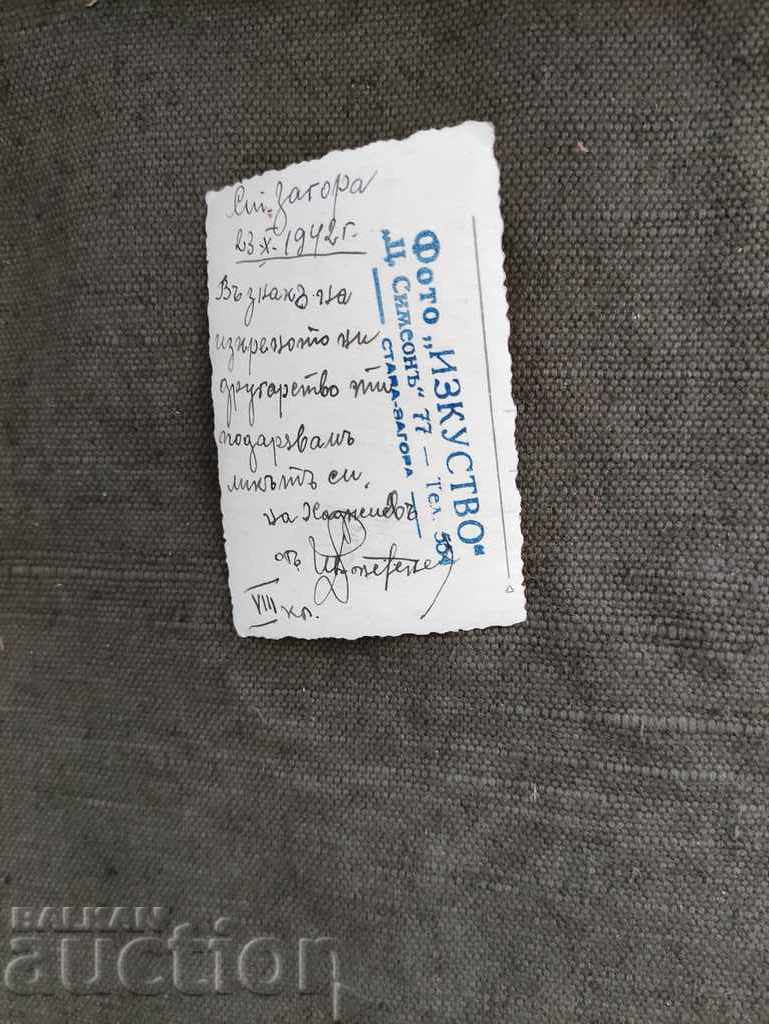 Ст. Загора
23.X.1942 г.
Въ знакъ на
искреното ни
другарство ти
подарявамъ
ликътъ си.
на Хаджиевъ
отъ
VIII кл.
Фото „ИЗКУСТВО“
„Ц. Симеонъ“ 77 — Тел. 554
СТАРА-ЗАГОРА
BALKAN
auction